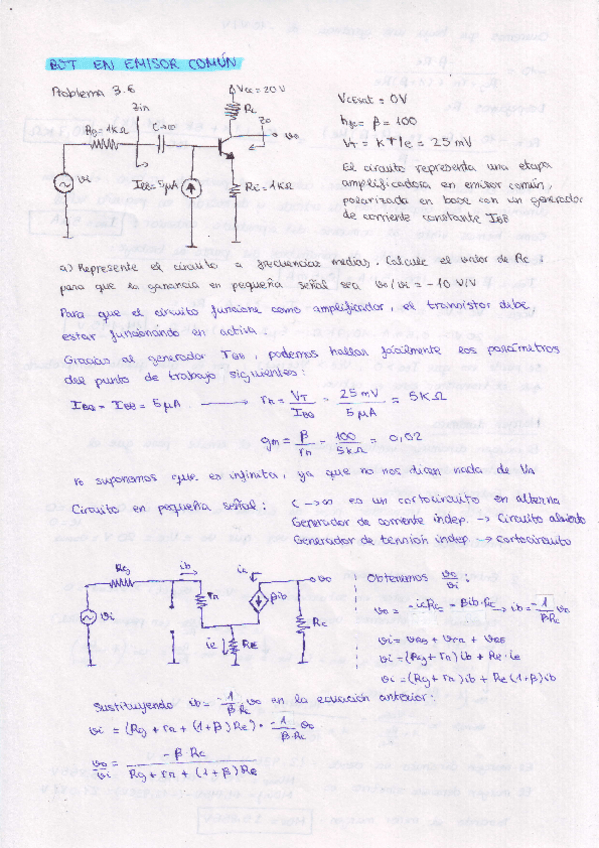 BJT EN EMISOR COMÚN
Problema 3.6
Vcc = 20V
Rc
Zin
Zo
Rg = 1KΩ
C→∞
vo
vi
IBB = 5μA
RE = 1KΩ
VCEsat = 0V
hfe = β = 100
VT = KT/e = 25 mV
El circuito representa una etapa
amplificadora en emisor común,
polarizada en base con un generador
de corriente constante IBB
a) Represente el circuito a frecuencias medias. Calcule el valor de Rc
para que la ganancia en pequeña señal sea vo/vi = -10 V/V
Para que el circuito funcione como amplificador, el transistor debe
estar funcionando en activa.
Gracias al generador IBB, podemos hallar fácilmente los parámetros
del punto de trabajo siguientes:
IBQ = IBB = 5μA → rπ = VT / IBQ = 25 mV / 5 μA = 5KΩ
gm = β / rπ = 100 / 5KΩ = 0,02
ro suponemos que es infinita, ya que no nos dicen nada de VA
Circuito en pequeña señal: C → ∞ es un cortocircuito en alterna
Generador de corriente indep. → Circuito abierto
Generador de tensión indep → cortocircuito
Rg
ib
ic
vo
rπ
βib
vi
Rc
ie
RE
Obtenemos vo/vi:
vo = -ic Rc = -βib·Rc → ib = -1/βRc vo
vi = vRg + vrπ + vRE
vi = (Rg + rπ) ib + RE · ie
vi = (Rg + rπ) ib + RE (1+β) ib
Sustituyendo ib = -1/β·Rc vo en la ecuación anterior:
vi = (Rg + rπ + (1+β) RE) · -1/β·Rc vo
vo/vi = -β·Rc / Rg + rπ + (1+β) RE